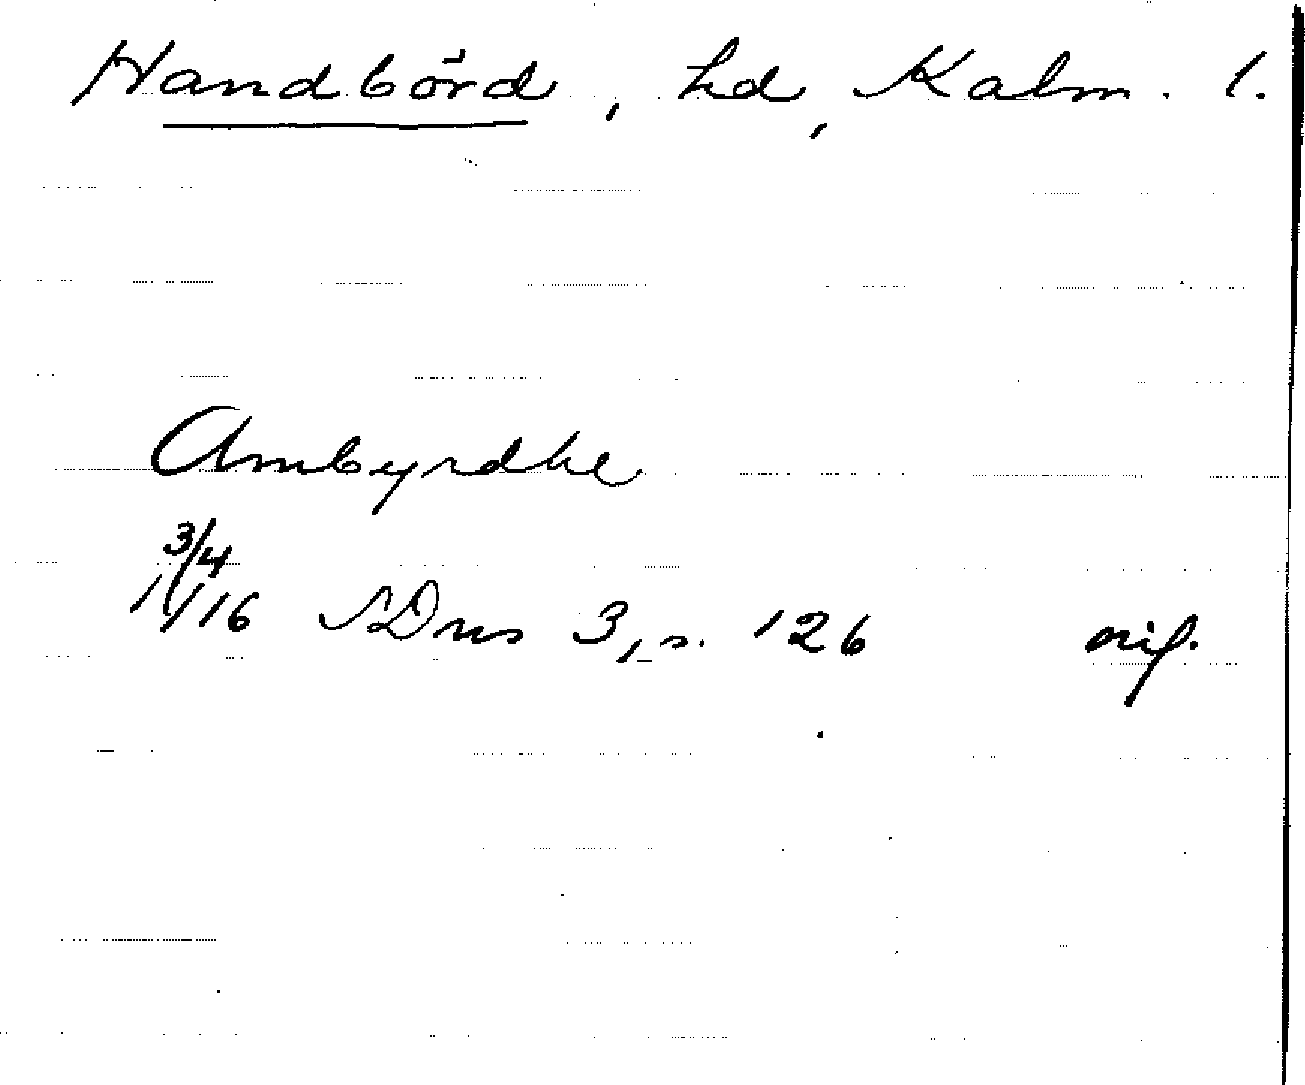 Handbörd, hd, Kalm. l.
Ambyrdhe
3/4
1416 SDns 3, s. 126 orig.